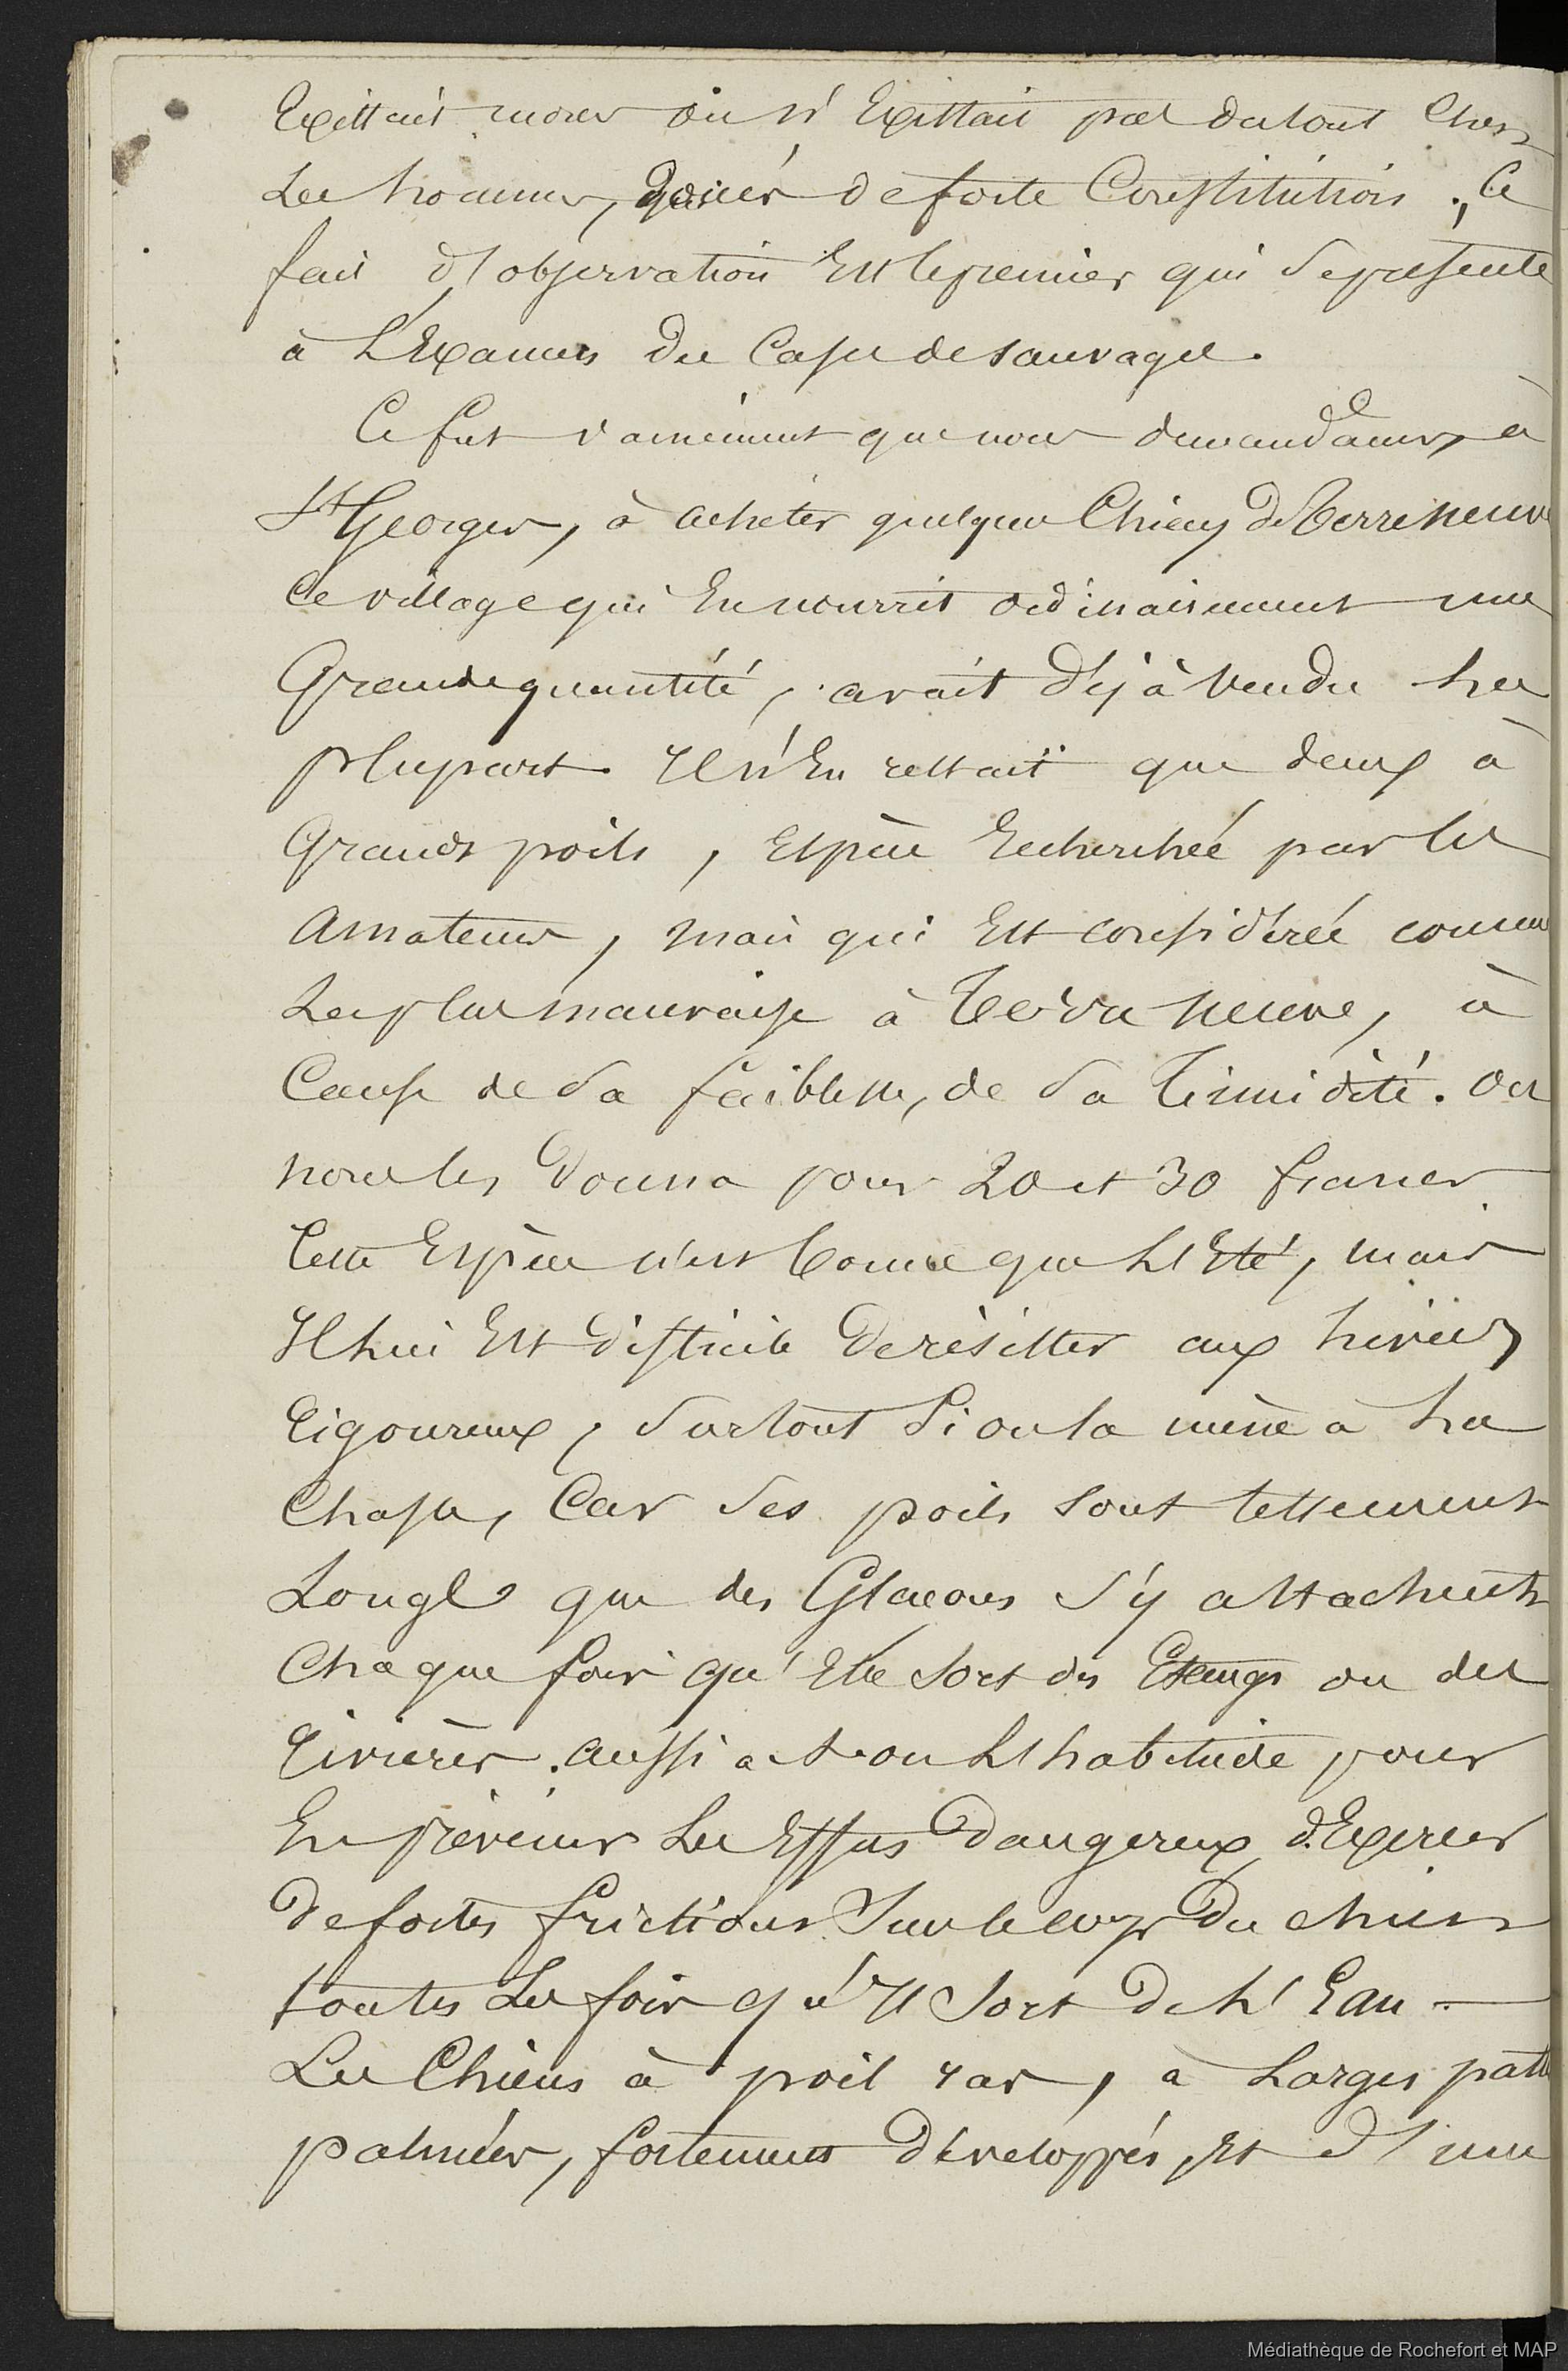 Existait moins ou N'Existait pas du tout Chez
Les hommes, doués de forte Constitution. Ce
fait d'observation Est le premier qui Se présente
à L'Examen Du Casu de sauvages.
Ce fut vainement que nous demandâmes, à
St Georges, à acheter quelques Chiens De Terre neuve
Ce village qui En nourrit ordinairement une
Grande quantité, avait Déjà Vendu La
plupart. Il N'En restait que deux à
Grands poils, Espèce Recherchée par les
Amateurs, mais qui Est considérée comme
La plus mauvaise à Terre Neuve, à
Cause de Sa faiblesse, de Sa Timidité. On
nous les Donna pour 20 et 30 francs
Cette Espèce n'est bonne que L'Eté, mais
Il lui Est difficile De résister aux hivers
Rigoureux, Surtout Si on la mène à La
Chasse, Car Ses poils Sont tellement
Longs que des Glacons S'y attachent
Chaque fois qu'Elle Sort des Etangs ou des
Rivières. aussi a t-on L'habitude pour
En prévenir Les Effets Dangereux d'Exercer
De fortes frictions Sur le corps Du chien
toutes Les fois qu'Il Sort De L'Eau. —
Les Chiens à poil ras, à Larges patte
palmées, fortement Développés, Et d'une
Médiathèque de Rochefort et MAP